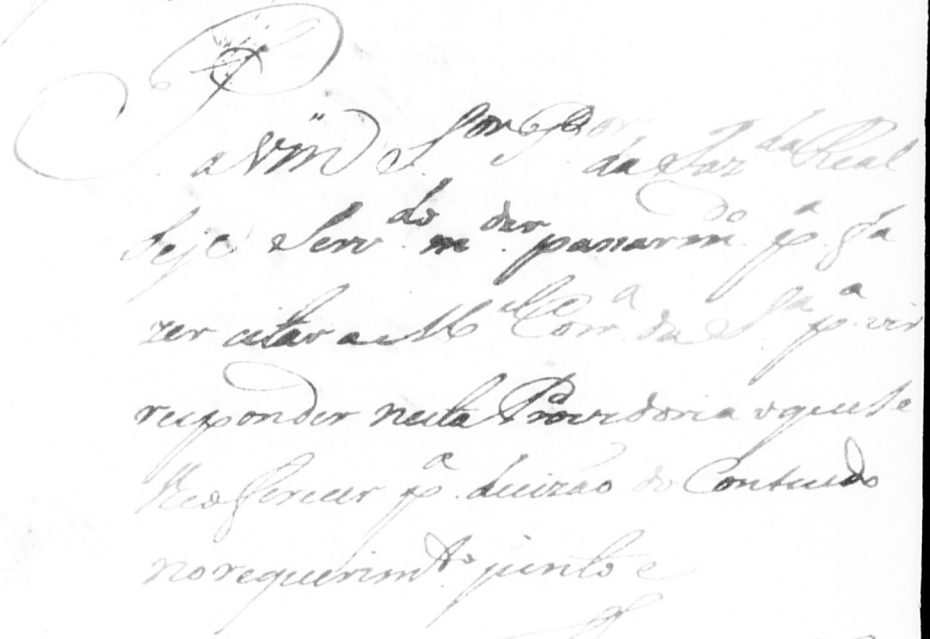 P. a Vm S.or P.or da Faz.da Real
Seje Serv.do m.dar pasar m.do p.a fa
zer citar a M.el Corr.a da S.a p.a vir
responder nesta Providoria o que se
lhe oferecer p.a decizaõ do Conteudo
no requerim.to junto e